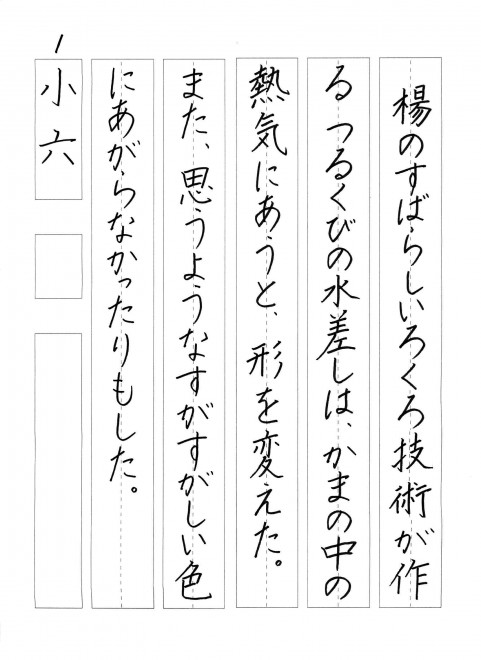 楊のすばらしいろくろ技術が作
るつるくびの水差しは、かまの中の
熱気にあうと、形を変えた。
また、思うようなすがすがしい色
にあがらなかったりもした。
1
小六